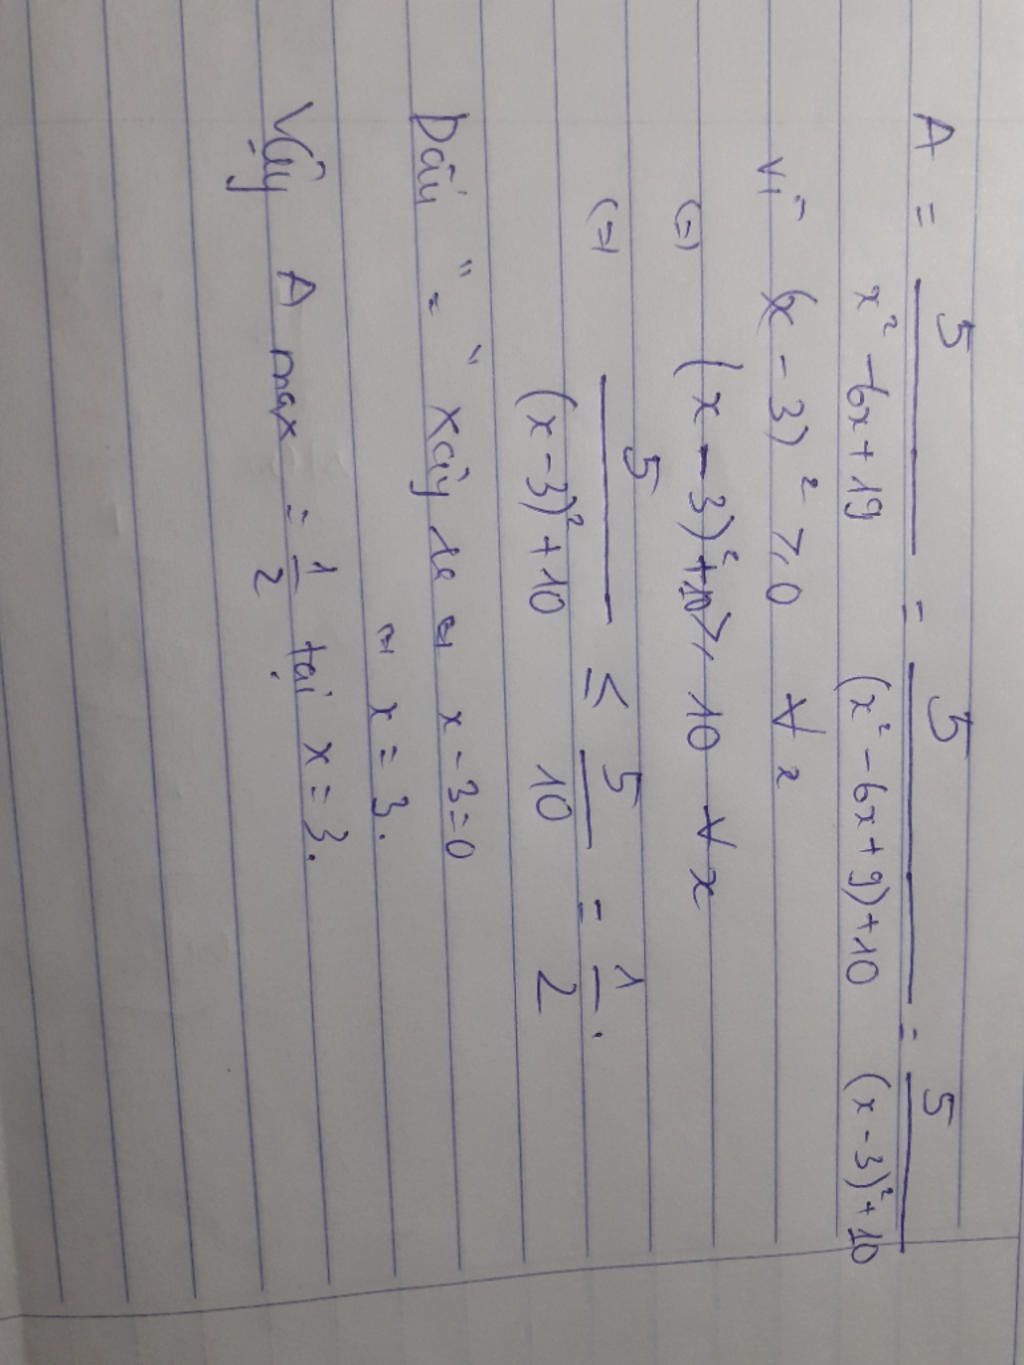 A = 5/(x² - 6x + 19) = 5/((x² - 6x + 9) + 10) = 5/((x - 3)² + 10)
Vì (x - 3)² ⩾ 0 ∀ x
(=) (x - 3)² + 10 ⩾ 10 ∀ x
(=) 5/((x - 3)² + 10) ≤ 5/10 = 1/2 .
Dấu " = " xảy ra (=) x - 3 = 0
(=) x = 3.
Vậy A max = 1/2 tại x = 3.